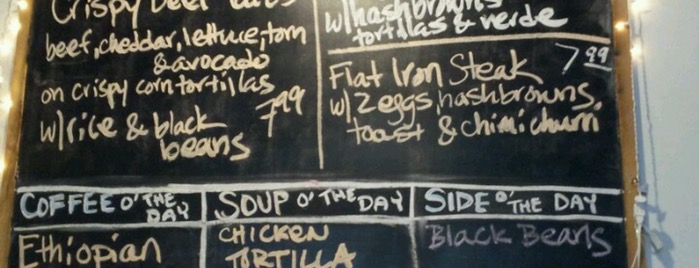 Crispy beef tacos
beef, cheddar, lettuce, tom
& avocado
on crispy corn tortillas
w/rice & black 7.99
beans
w/hashbrowns
tortillas & verde
Flat Iron Steak 7.99
w/2 eggs, hashbrowns,
toast & chimichurri
COFFEE O' THE DAY
Ethiopian
SOUP O' THE DAY
CHICKEN
TORTILLA
SIDE O' THE DAY
Black Beans